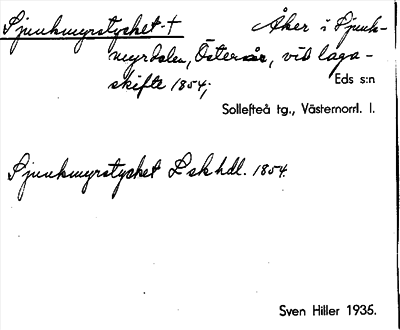 Sjunkmyrstycket † Åker i Sjunk-
myrdalen, Österår, vid laga-
skifte 1854;
Eds s:n
Sollefteå tg., Västernorrl. l.
Sjunkmyrstycket Lskhdl. 1854.
Sven Hiller 1935.